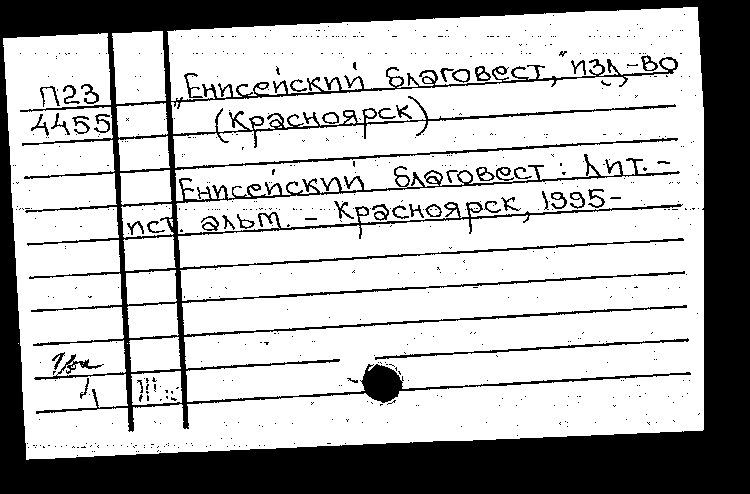 П23
4455
„Енисейский благовест,“ изд-во
(Красноярск)
Енисейский благовест: Лит.-
ист. альм. – Красноярск, 1995-